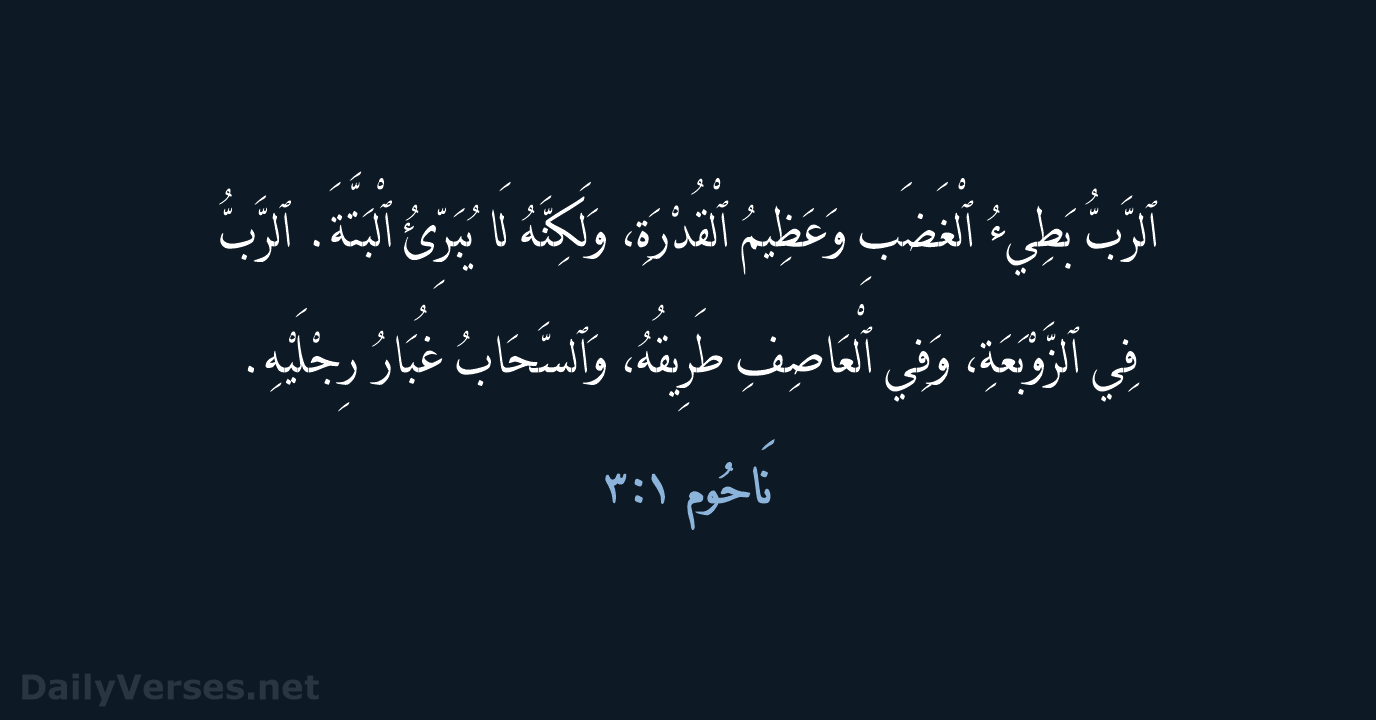 ٱلرَّبُّ بَطِيءُ ٱلْغَضَبِ وَعَظِيمُ ٱلْقُدْرَةِ، وَلَكِنَّهُ لَا يُبَرِّئُ ٱلْبَتَّةَ. ٱلرَّبُّ
فِي ٱلزَّوْبَعَةِ، وَفِي ٱلْعَاصِفِ طَرِيقُهُ، وَٱلسَّحَابُ غُبَارُ رِجْلَيْهِ.
نَاحُوم ٣:١
DailyVerses.net